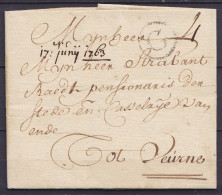 Mijnheer
17: junij 1763
Mijnheer Strabant
Raedt pensionaris der
Stede en Casselrye van
ende
Tot Veürne